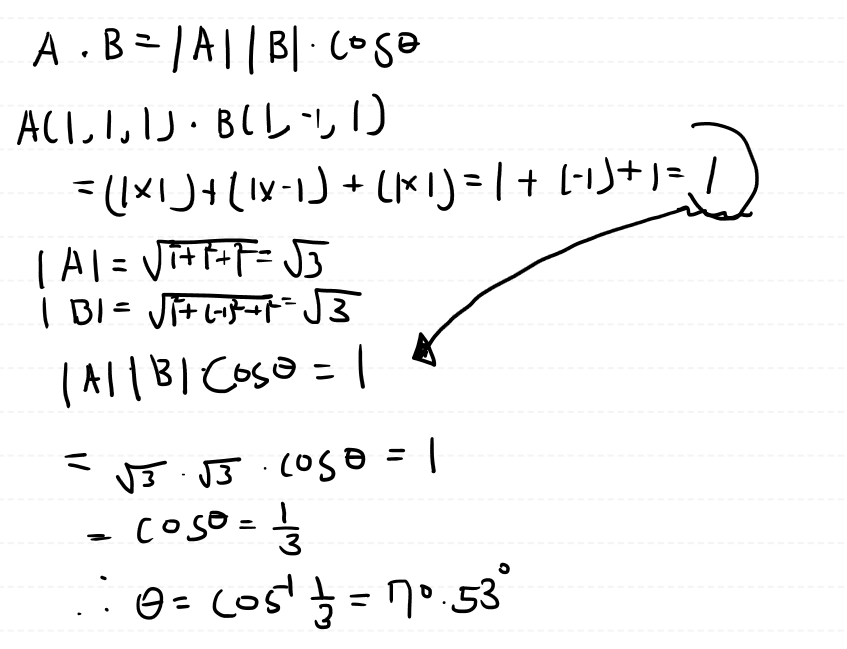 A . B = |A| |B| · cosθ
A(1, 1, 1) · B(1, -1, 1)
= (1×1) + (1×-1) + (1×1) = 1 + (-1) + 1 = 1
|A| = √1²+1²+1² = √3
|B| = √1²+(-1)²+1² = √3
|A| |B| · cosθ = 1
= √3 · √3 · cosθ = 1
= cosθ = 1/3
∴ θ = cos⁻¹ 1/3 = 70.53°